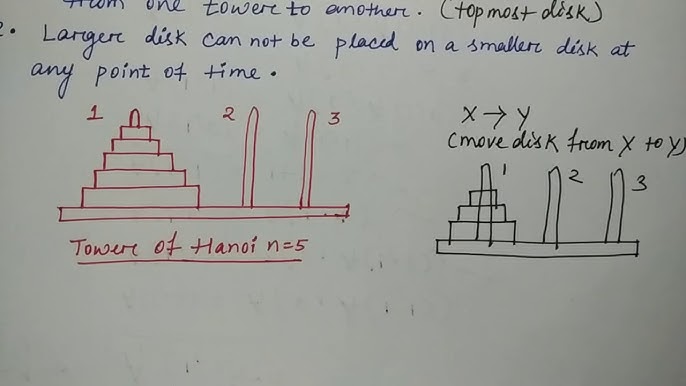 from one towere to another. (topmost disk)
2. Largere disk can not be placed on a smallere disk at
any point of time.
1 2 3
X → Y
(move disk from X to Y)
1 2 3
Towere of Hanoi n=5